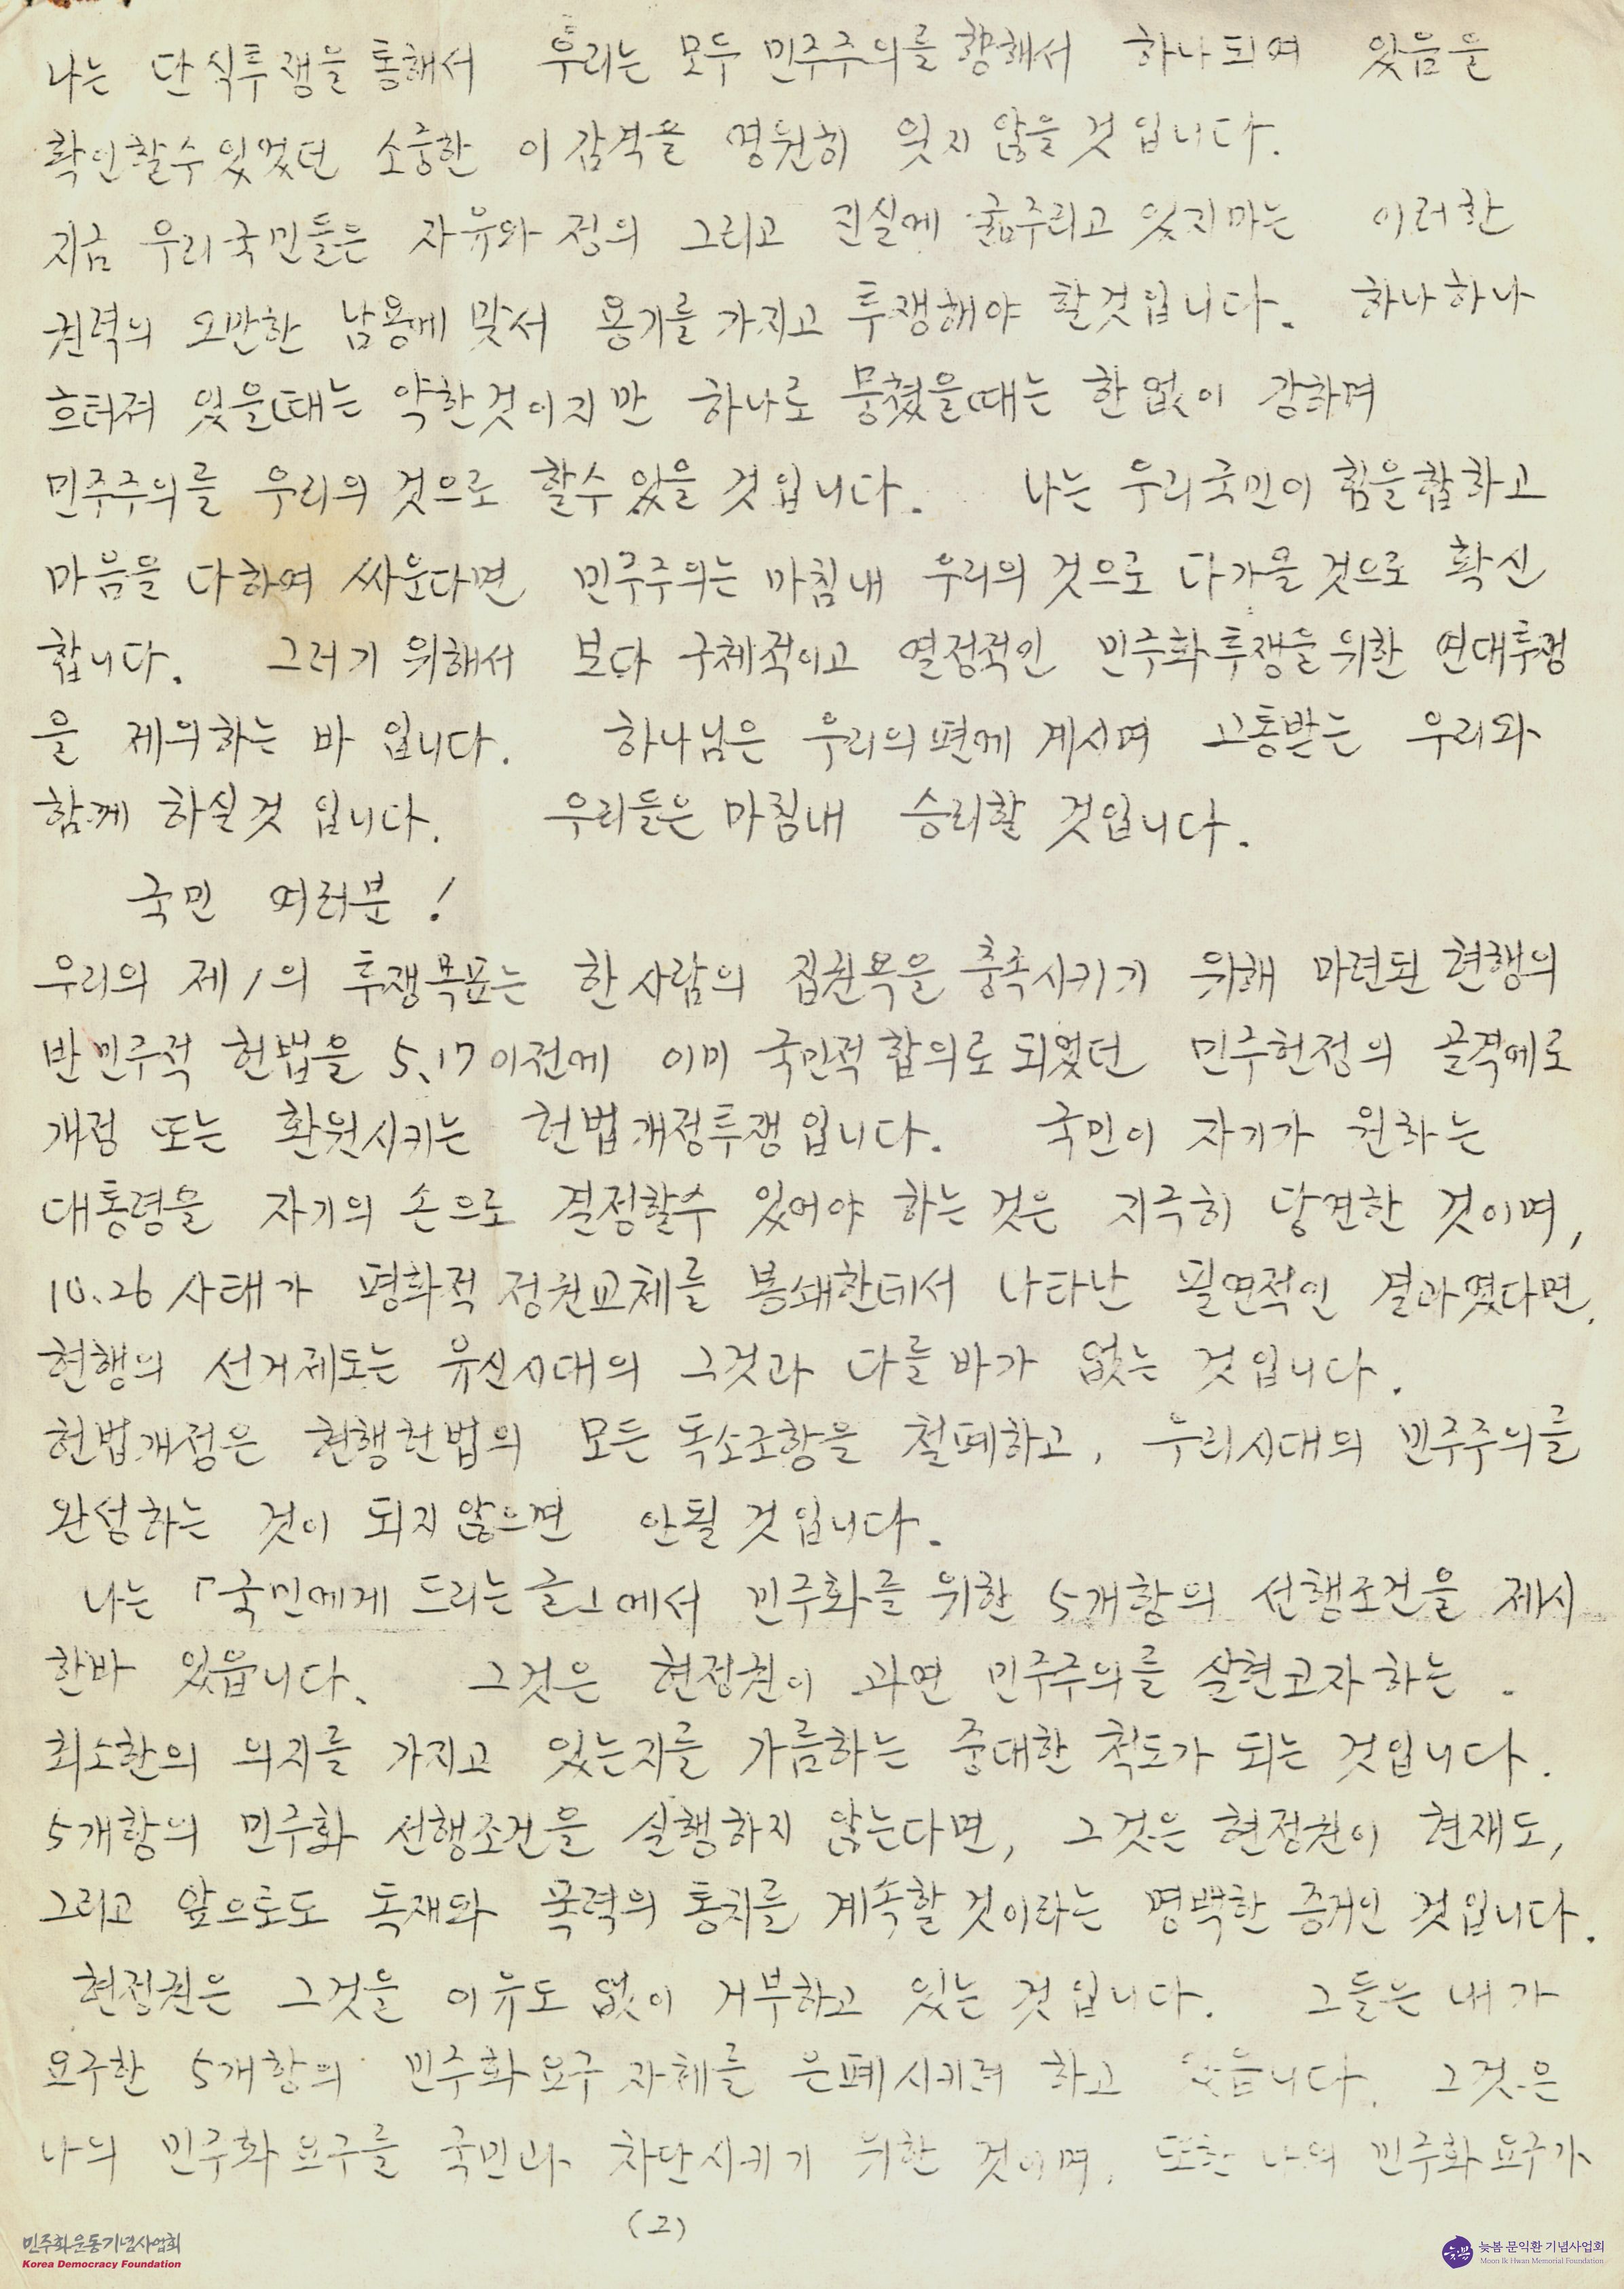 나는 단식투쟁을 통해서 우리는 모두 민주주의를 향해서 하나되여 있음을
확인할수있었던 소중한 이 감격을 영원히 잊지 않을것입니다.
지금 우리국민들은 자유와 정의 그리고 진실에 굶주리고 있지마는 이러한
권력의 오만한 남용에 맞서 용기를 가지고 투쟁해야 할것입니다. 하나하나
흐터져 있을때는 약한것이지만 하나로 뭉쳤을때는 한없이 강하며
민주주의를 우리의 것으로 할수있을 것입니다. 나는 우리국민이 힘을합하고
마음을 다하여 싸운다면 민주주의는 마침내 우리의 것으로 다가올것으로 확신
합니다. 그러기 위해서 보다 구체적이고 열정적인 민주화투쟁을위한 연대투쟁
을 제의하는 바 입니다. 하나님은 우리의편에 계시며 고통받는 우리와
함께 하실것 입니다. 우리들은 마침내 승리할 것입니다.
국민 여러분!
우리의 제1의 투쟁목표는 한사람의 집권욕을 충족시키기 위해 마련된 현행의
반민주적 헌법을 5.17이전에 이미 국민적합의로 되었던 민주헌정의 골격에로
개정 또는 환원시키는 헌법개정투쟁입니다. 국민이 자기가 원하는
대통령을 자기의 손으로 결정할수 있어야 하는 것은 지극히 당연한 것이며,
10.26사태가 평화적 정권교체를 봉쇄한데서 나타난 필연적인 결과였다면,
현행의 선거제도는 유신시대의 그것과 다를바가 없는 것입니다.
헌법개정은 현행헌법의 모든 독소조항을 철폐하고, 우리시대의 민주주의를
완성하는 것이 되지않으면 안될것입니다.
나는 「국민에게 드리는글」에서 민주화를 위한 5개항의 선행조건을 제시
한바 있읍니다. 그것은 현정권이 과연 민주주의를 실현코자하는
최소한의 의지를 가지고 있는지를 가름하는 중대한 척도가 되는 것입니다.
5개항의 민주화 선행조건을 실행하지 않는다면, 그것은 현정권이 현재도,
그리고 앞으로도 독재와 폭력의 통치를 계속할것이라는 명백한 증거인 것입니다.
현정권은 그것을 이유도 없이 거부하고 있는 것입니다. 그들은 내가
요구한 5개항의 민주화요구 자체를 은폐시키려 하고 있읍니다. 그것은
나의 민주화요구를 국민과 차단시키기 위한 것이며, 또한 나의 민주화요구가
(2)
민주화운동기념사업회
Korea Democracy Foundation
늦봄 문익환 기념사업회
Moon Ik Hwan Memorial Foundation